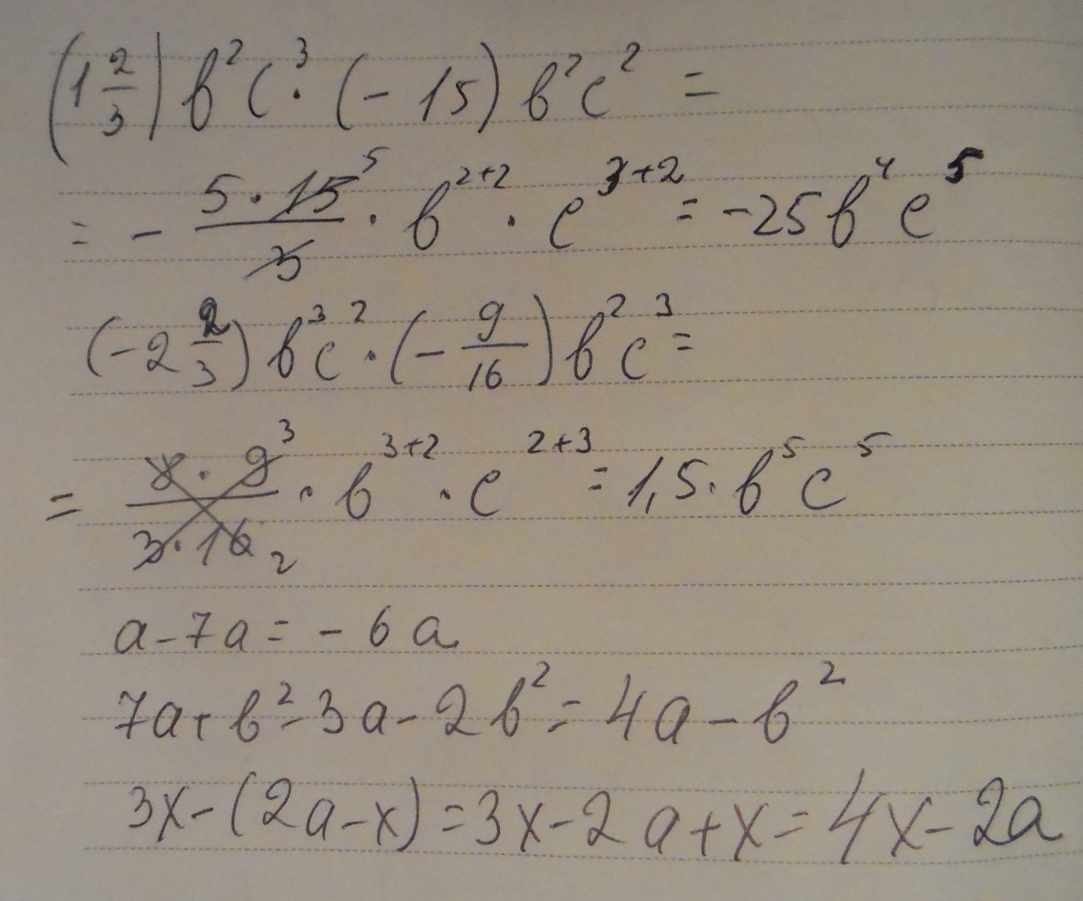 (1 2/3) b²c³ · (-15) b²c² =
= - (5 · 15⁵)/3 · b²⁺² · c³⁺² = -25b⁴c⁵
(-2 2/3) b³c² · (- 9/16) b²c³ =
= (8 · 9³)/(3 · 16₂) · b³⁺² · c²⁺³ = 1,5 · b⁵c⁵
a - 7a = - 6a
7a + b² - 3a - 2b² = 4a - b²
3x - (2a - x) = 3x - 2a + x = 4x - 2a